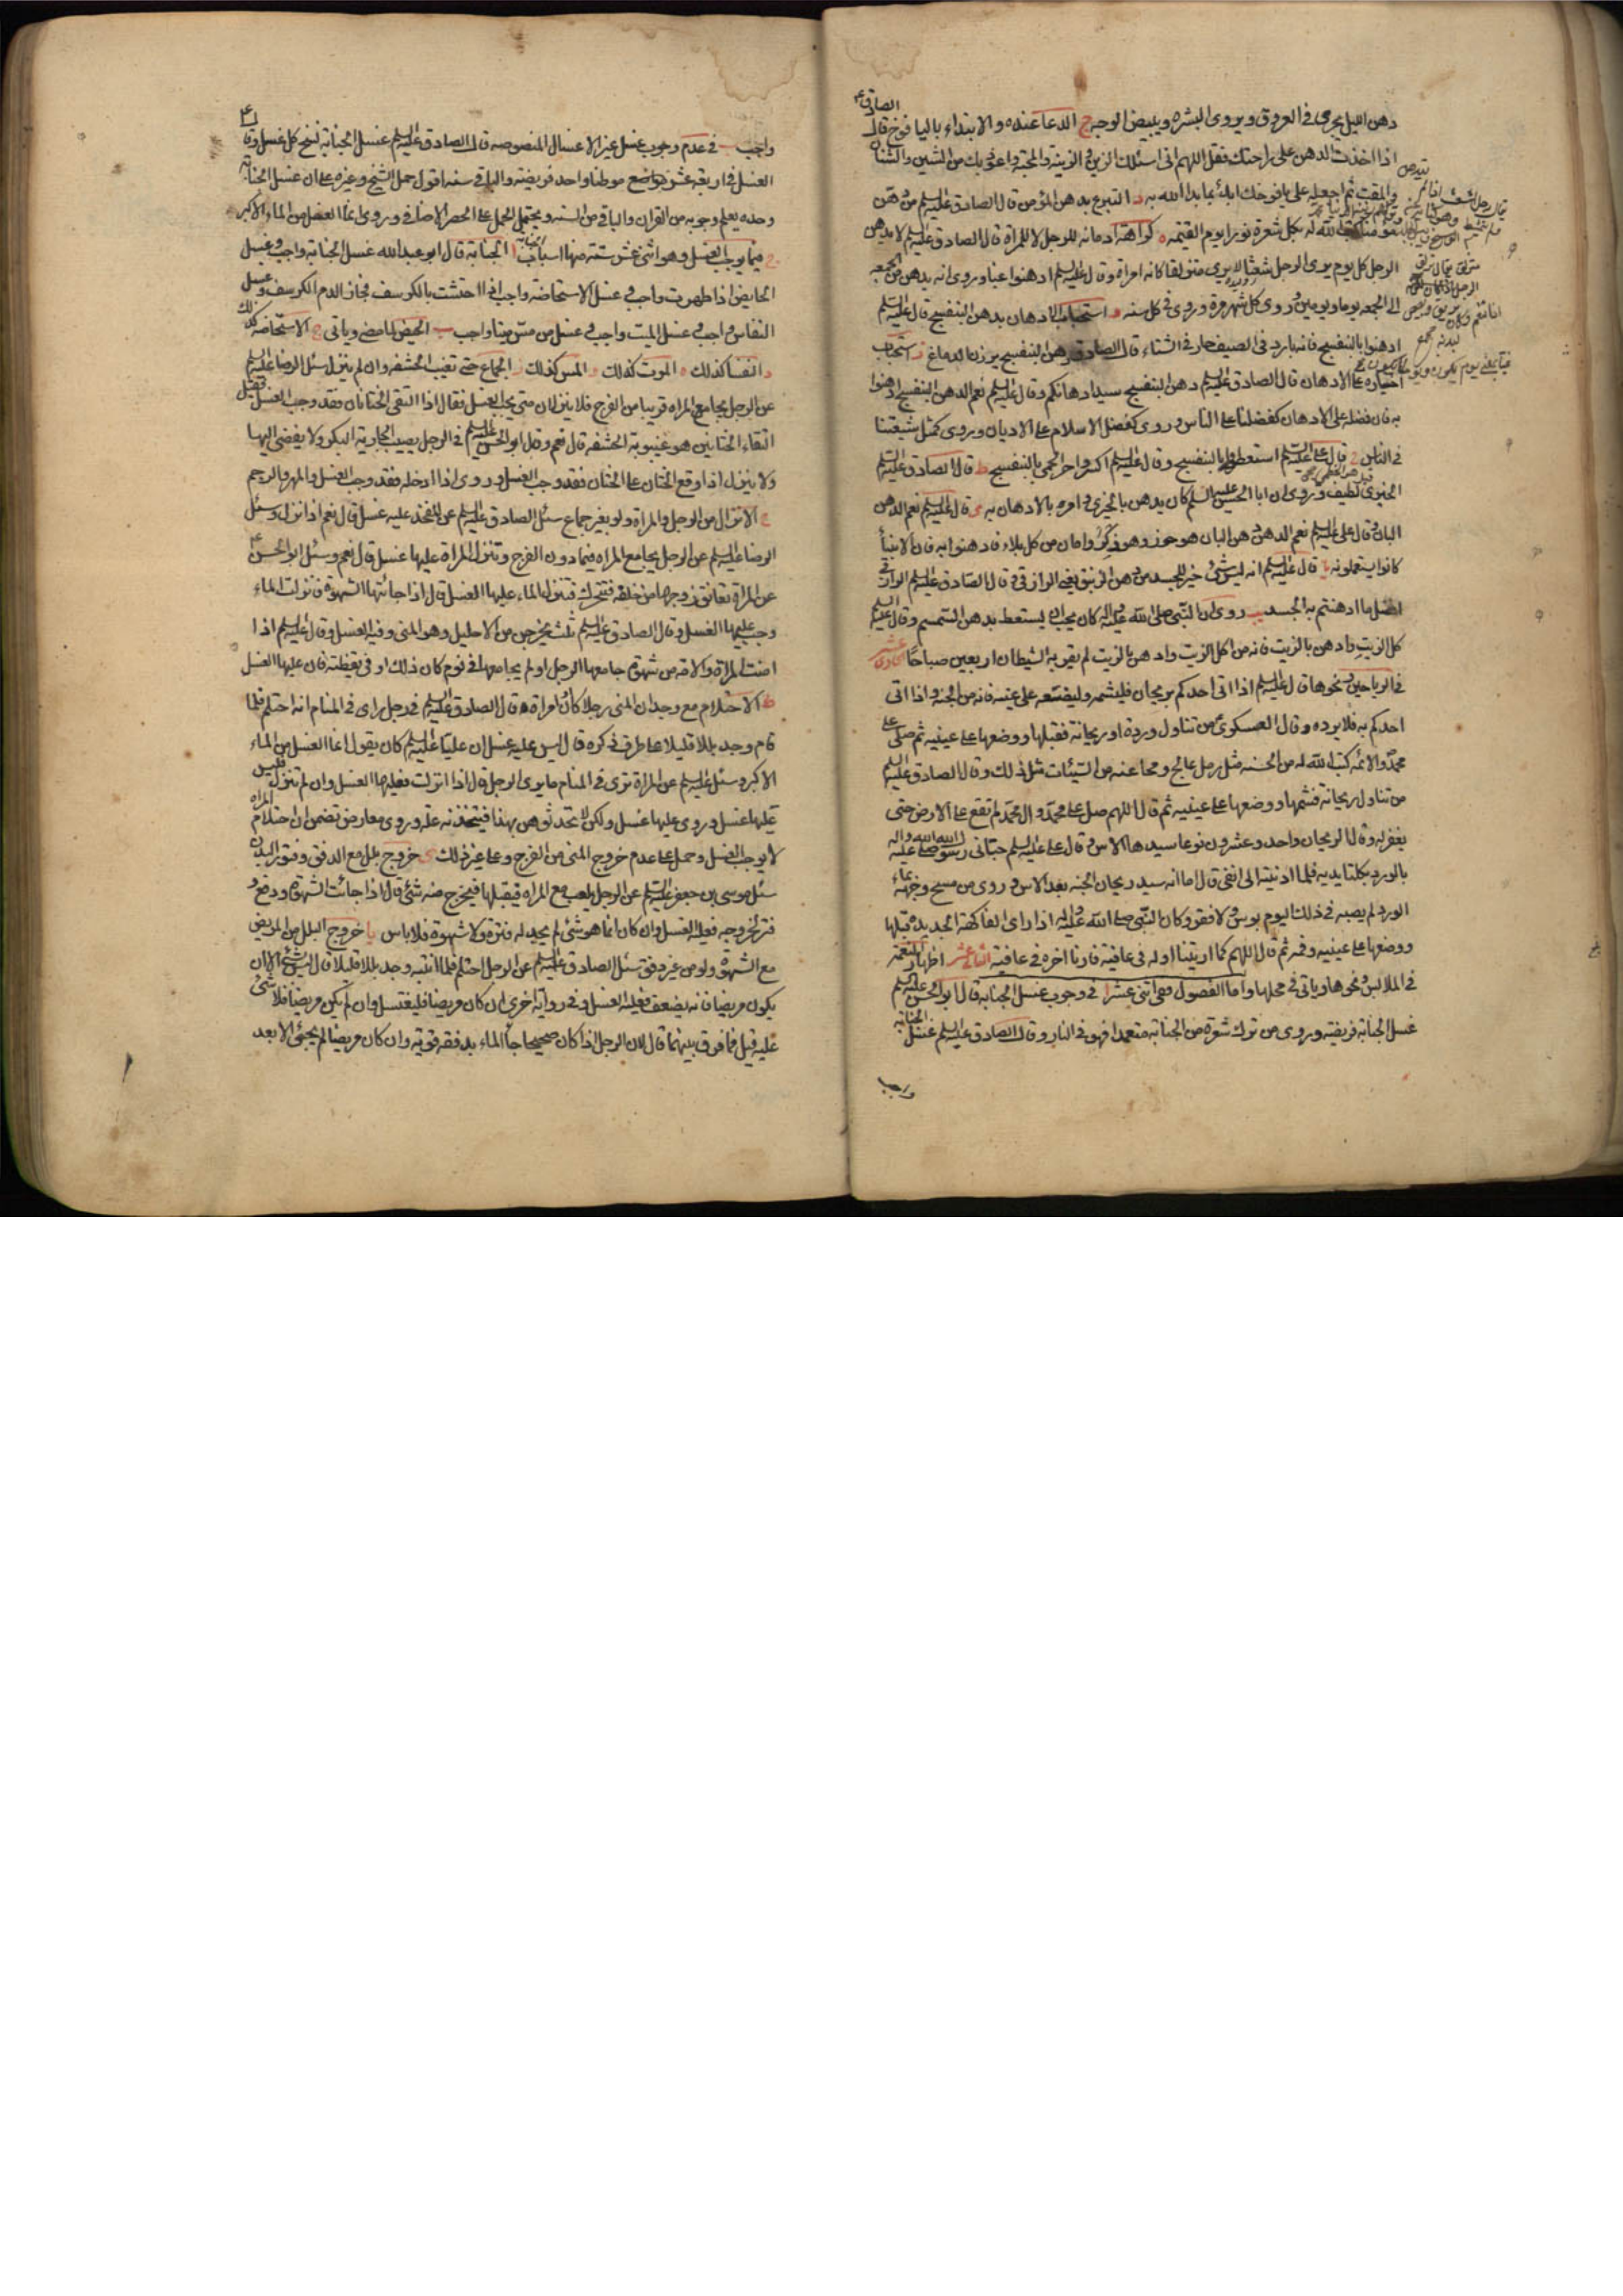 دهن الليل يجرى فى العروق ويروى البشره ويبيض الوجه ج الدعا عنده والابتداء باليافوخ قال الصادق ع
اذا اخذت الدهن على راحتك فقل اللهم انى اسئلك الزين و الزينة والمحبة واعوذ بك من الشين والشنان
والمقت ثم اجعله على يافوخك ابدأ بما بدا الله به د التبرع بدهن المؤمن قال الصادق عليه السلم من دهن
كتب الله له بكل شعرة نورا يوم القيمه ه كراهة ادمانه للرجل لا للمراة قال الصادق عليه السلم لا يدهن
الرجل كل يوم يرى الرجل شعثا لا يرى متزلقا كانه امراة وقال عليه السلم ادهنوا غبا وروى انه يدهن من الجمعه
الى الجمعه يوما ويومين و روى كل شهر مرة وروى فى كل سنه و استحباب الادهان بدهن البنفسج قال عليه السلم
ادهنوا بالبنفسج فانه بارد فى الصيف حار فى الشتاء قال الصادق دهن البنفسج يرزن الدماغ ز استحباب
اختياره على الادهان قال الصادق عليه السلم دهن البنفسج سيد ادهانكم وقال عليه السلم نعم الدهن البنفسج ادهنوا
به فان فضله على الادهان كفضلنا على الناس و روى كفضل الاسلام على الاديان وروى كمثل شيعتنا
فى الناس ح قال على عليه السلم استعطوا بالبنفسج وقال عليه السلم اكسروا حر الحمى بالبنفسج ط قال الصادق عليه السلم
الخيرى لطيف وروى ان ابا الحسن عليه السلم كان يدهن بالخيرى و امره بالادهان به ى قال عليه السلم نعم الدهن
البان وقال على عليه السلم نعم الدهن دهن البان هو حرز وهو ذكر وامان من كل بلاء فادهنوا به فان الانبيأ
كانوا يستعملونه يا قال عليه السلم انه ليس شئ خير للجسد من دهن الزنبق يعنى الرازقى و قال الصادق عليه السلم الرازقى
افضل ما ادهنتم به الجسد يب روى ان النبى صلى الله عليه واله كان يحب ان يستعط بدهن السمسم وقال عليه السلم
كل الزيت وادهن بالزيت فانه من اكل الزيت وادهن بالزيت لم يقربه الشيطان اربعين صباحا الحادى عشر
فى الرياحين ونحوها قال عليه السلم اذا اتى احدكم بريحان فليشمه وليضعه على عينيه فانه من الجنة و اذا اتى
احدكم به فلا يرده وقال العسكرى ع من تناول وردة او ريحانة فقبلها ووضعها على عينيه ثم صلى على
محمد والائمه كتب الله له من الحسنه مثل رمل عالج ومحا عنه من السيئات مثل ذلك وقال الصادق عليه السلم
من تناول ريحانة فشمها ووضعها على عينيه ثم قال اللهم صل على محمد وال محمد لم تقع على الارض حتى
يغفر له وقال الريحان واحد وعشرون نوعا سيدها الاس وقال على عليه السلم حبانى رسول الله صلى الله عليه واله
بالورد بكلتا يديه فلما ادنيته الى انفى قال اما انه سيد ريحان الجنه بعد الاس و روى من مسح وجهه بماء
الورد لم يصبه فى ذلك اليوم بؤس ولا فقر وكان النبى صلى الله عليه واله اذا راى الفاكهة الجديده قبلها
ووضعها على عينيه وفمه ثم قال اللهم كما اريتنا اوله فى عافية فارنا اخره فى عافية الثانى عشر اظهار النعمة
فى الملابس ونحوها وياتى فى محلها واما الفصول فهى اثنى عشر ا فى وجوب غسل الجنابة قال ابو الحسن عليه السلم
غسل الجنابة فريضه وروى من ترك شعرة من الجنابة متعمدا فهو فى النار وقال الصادق عليه السلم غسل الجنابة
واجب
واجب ب فى عدم وجوب غسل غير الاغسال المنصوصه قال الصادق عليه السلم غسل الجنابة نسخ كل غسل وقال
الغسل فى اربعة عشر موطنا واحد فريضه والباقى سنه اقول حمل الشيخ وغيره على ان غسل الجنابة
وحده يعلم وجوبه من القران والباقى من السنه ويحتمل الحمل على الحصر الاضافى وروى انما الغسل من الماء الاكبر
ج فيما يوجب الغسل وهو اثنى عشر ستة منها اسباب ا الجنابة قال ابو عبد الله غسل الجنابة واجب وغسل
الحايض اذا طهرت واجب و غسل الاستحاضه واجب اذا احتشت بالكرسف فجاز الدم الكرسف وغسل
النفاس واجب و غسل الميت واجب و غسل من مس ميتا واجب ب الحيض لما مضى وياتى ج الاستحاضه كذلك
د النفسا كذلك ه الموت كذلك و المس كذلك ز الجماع حتى تغيب الحشفه وان لم ينزل سئل الرضا عليه السلم
عن الرجل يجامع المراه قريبا من الفرج فلا ينزلان متى يجب الغسل فقال اذا التقى الختانان فقد وجب الغسل فقيل
التقاء الختانين هو غيبوبة الحشفه قال نعم وقال ابو الحسن عليه السلم فى الرجل يصيب الجارية البكر ولا يفضى اليها
ولا ينزل اذا وقع الختان على الختان فقد وجب الغسل وروى اذا ادخله فقد وجب الغسل والمهر والرجم
ح الانزال من الرجل والمراة ولو بغير جماع سئل الصادق عليه السلم عن المفخذ عليه غسل قال نعم اذا انزل وسئل
الرضا عليه السلم عن الرجل يجامع المراه فيما دون الفرج وتنزل المراة عليها غسل قال نعم وسئل ابو الحسن ع
عن المراة تعانق زوجها من خلفه فتتحرك فتنزل الماء عليها الغسل قال اذا جائتها الشهوة فانزلت الماء
وجب عليها الغسل وقال الصادق عليه السلم ثلث يخرجن من الاحليل وهو المنى وفيه الغسل وقال عليه السلم اذا
امنت المراة والامة من شهوة جامعها الرجل او لم يجامعها فى نوم كان ذلك او فى يقظة فان عليها الغسل
ط الاحتلام مع وجدان المنى رجلا كان او امراة قال الصادق عليه السلم فى رجل راى فى المنام انه احتلم فلما
قام وجد بللا قليلا على طرف ذكره قال ليس عليه غسل ان عليا عليه السلم كان يقول انما الغسل من الماء
الاكبر وسئل عليه السلم عن المراة ترى فى المنام ما يرى الرجل قال اذا انزلت فعليها الغسل وان لم تنزل فليس
عليها غسل وروى عليها غسل ولكن لا تحدثوهن بهذا فيتخذنه علة وروى معارض تضمن ان احتلام المراه
لا يوجب الغسل وحمل على عدم خروج المنى من الفرج وعلى غير ذلك ى خروج بلل مع الدفق وفتور البدن
سئل موسى بن جعفر عليه السلم عن الرجل يلعب مع المراه فيقبلها فيخرج منه شئ قال اذا جائت الشهوة ودفع و
فتر لخروجه فعليه الغسل وان كان انما هو شئ لم يجد له فترة ولا شهوة فلا باس يا خروج البلل من المريض
مع الشهوة ولو من غير دفق سئل الصادق عليه السلم عن الرجل احتلم فلما انتبه وجد بللا قليلا قال ليس بشئ الا ان
يكون مريضا فانه يضعف فعليه الغسل وفى رواية اخرى ان كان مريضا فليغتسل وان لم يكن مريضا فلا شئ
عليه قيل فما فرق بينهما قال لان الرجل اذا كان صحيحا جاء الماء بدفقة قوية وان كان مريضا لم يجئ الا بعد